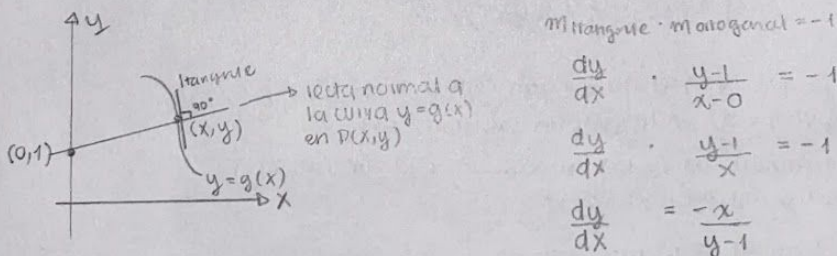 y
ltangente
90°
recta normal a
la curva y=g(x)
en P(x,y)
(x,y)
(0,1)
y=g(x)
x
mtangente · mortogonal = -1
dy/dx · y-1/x-0 = -1
dy/dx · y-1/x = -1
dy/dx = -x/y-1